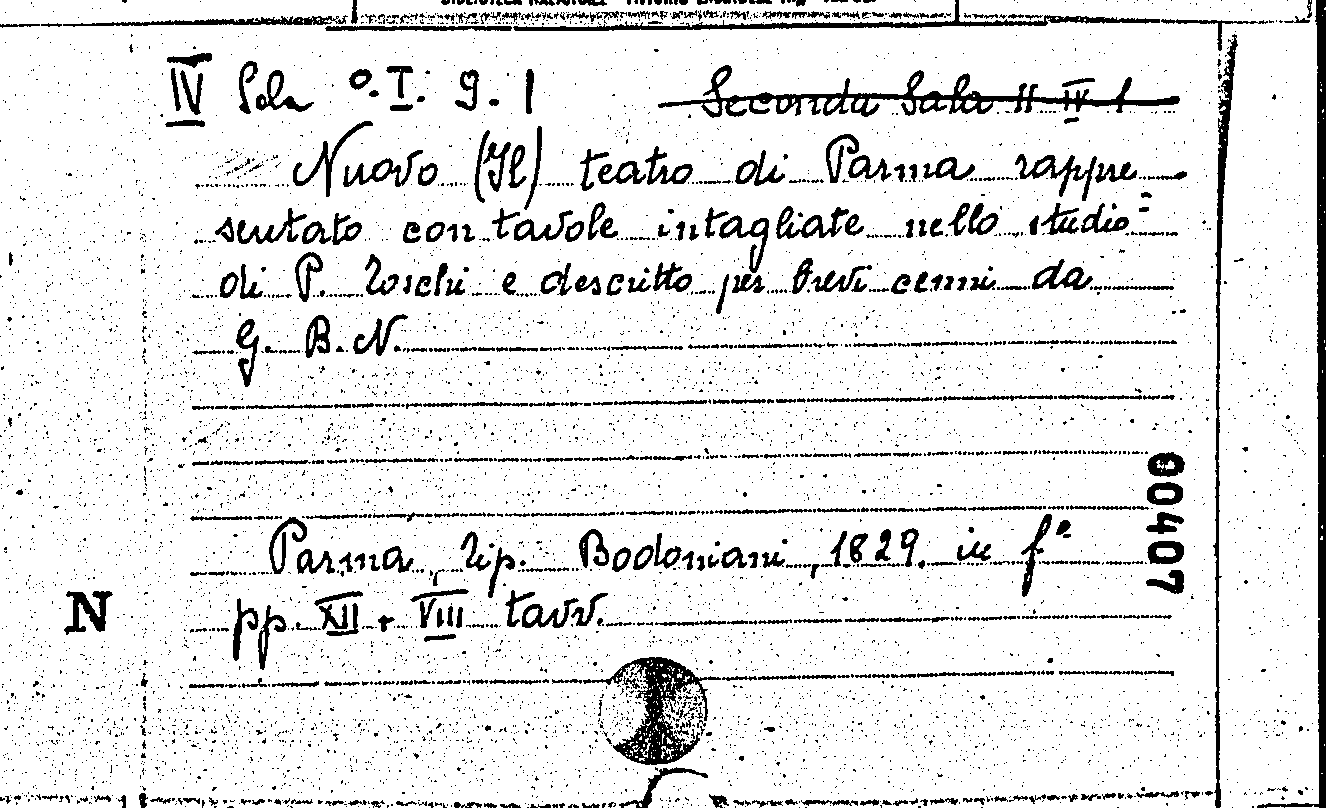 IV Sala o. I. 9. 1
Seconda Sala 11 IV 1
Nuovo (Il) teatro di Parma rappre
sentato con tavole intagliate nello studio
di P. Toschi e descritto per brevi cenni da
G. B. N.
00407
Parma, Tip. Bodoniani, 1829. in fº
N
pp. XII + VIII tavv.